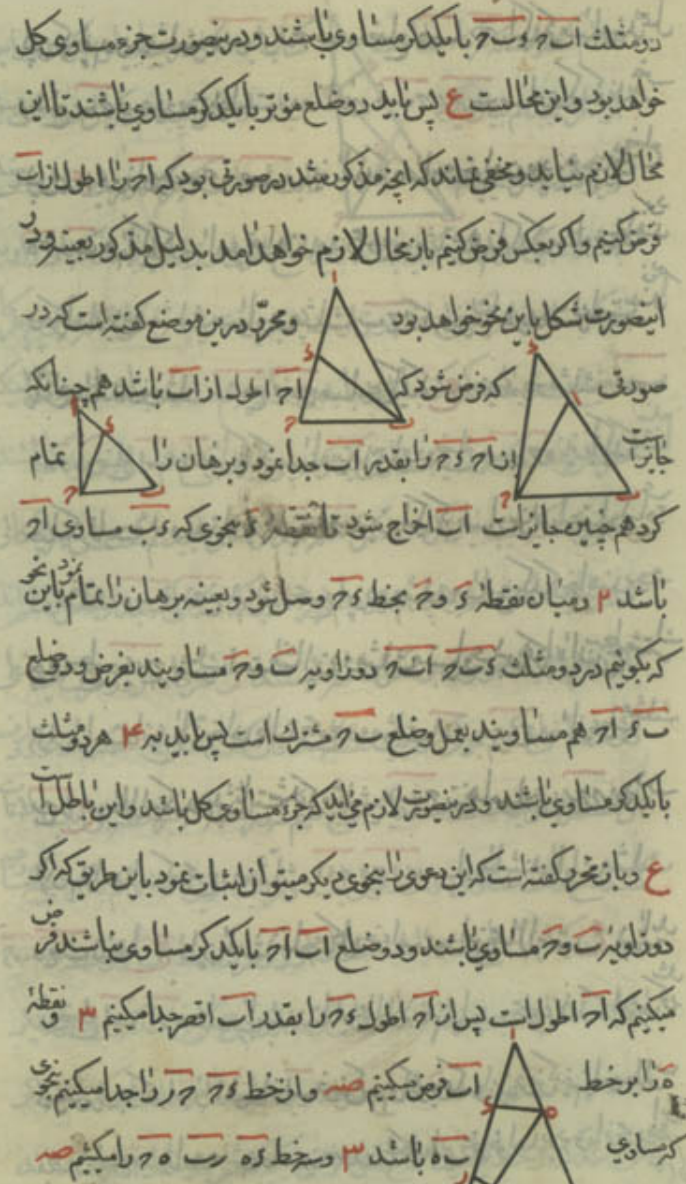 دو مثلث اب‌ح ءب‌ح بایکدکر مساوی باشند و درینصورت جزء مساوی کل
خواهد بود و این محالست ع پس باید دو ضلع مؤتر بایکدکر مساوی باشند تا این
محال لازم نیاید و مخفی نماند که انچه مذکور شد در صورتی بود که اح را اطول از اب
فرض کنیم و اکر بعکس فرض کنیم باز محال لازم خواهد امد بدلیل مذکور بعینه و در
اینصورت شکل باین نحو خواهد بود و محرّر درین موضع کفته است که در
صورتی که فرض شود که اح اطول از اب باشد هم چنانکه
جایز است از اح ءح را بقدر اب جدا نمود و برهان را تمام
کرد هم چنین جایز است اب اخراج شود تا نقطهٔ ء بنحوی که ءب مساوی اح
باشد ۲ و میان نقطهٔ ء و ح بخط ءح وصل شود و بعینه برهان را تمام نمود باین نحو
که بکوییم در دو مثلث ءب‌ح اب‌ح دو زاویه ب و ح مساویند بفرض و دو ضلع
ب‌ء اح هم مساویند بعمل و ضلع ب‌ح مشترک است پس باید به ۴ هر دو مثلث
بایکدکر مساوی باشند و درینصورت لازم می‌اید که جزء مساوی کل باشد و این باطل است
ع و باز محرر کفته است که این دعوی را بنحوی دیکر میتوان اثبات نمود باین طریق که اکر
دو زاویهٔ ب و ح مساوی باشند و دو ضلع اب اح بایکدکر مساوی نباشند فرض
میکنیم که اح اطول است پس از اح اطول ءح را بقدر اب اقصر جدا میکنیم ۳ و نقطهٔ
ه را بر خط اب فرض میکنیم صه و از خط ءح ح‌ر را جدا میکنیم بنحوی
که مساوی ب‌ه باشد ۳ و سه خط ءه رب ه‌ح را میکشیم صه